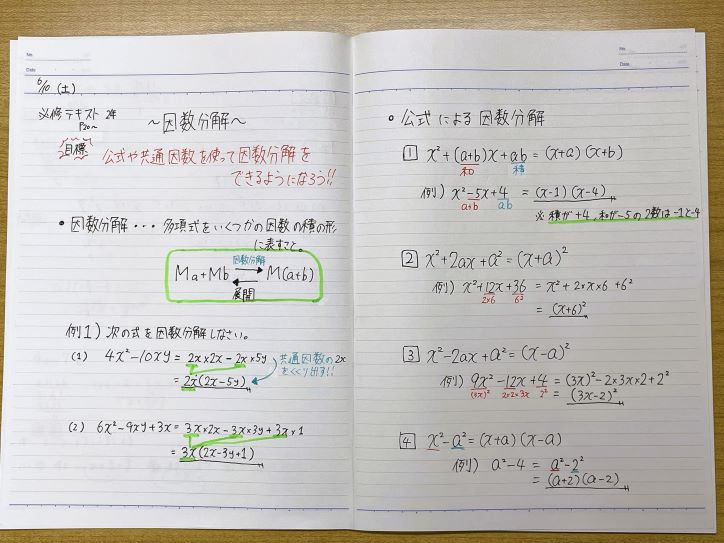 No.
Date
6/10 (土)
必修テキスト 2年
P20~
~因数分解~
目標
公式や共通因数を使って因数分解を
できるようになろう!!
• 因数分解・・・多項式をいくつかの因数の積の形
に表すこと。
因数分解
Ma+Mb → M(a+b)
←
展開
例1) 次の式を因数分解しなさい。
(1) 4x²-10xy = 2x×2x-2x×5y
= 2x(2x-5y)
共通因数の2x
をくくり出す!!
(2) 6x²-9xy+3x = 3x×2x-3x×3y+3x×1
= 3x(2x-3y+1)
No.
Date
• 公式による因数分解
1 x²+(a+b)x+ab = (x+a)(x+b)
和 積
例) x²-5x+4 = (x-1)(x-4)
a+b ab
※積が+4、和が-5の2数は-1と-4
2 x²+2ax+a² = (x+a)²
例) x²+12x+36 = x²+2×x×6+6²
2×6 6²
= (x+6)²
3 x²-2ax+a² = (x-a)²
例) 9x²-12x+4 = (3x)²-2×3x×2+2²
(3x)² 2×2×3x 2²
= (3x-2)²
4 x²-a² = (x+a)(x-a)
例) a²-4 = a²-2²
= (a+2)(a-2)